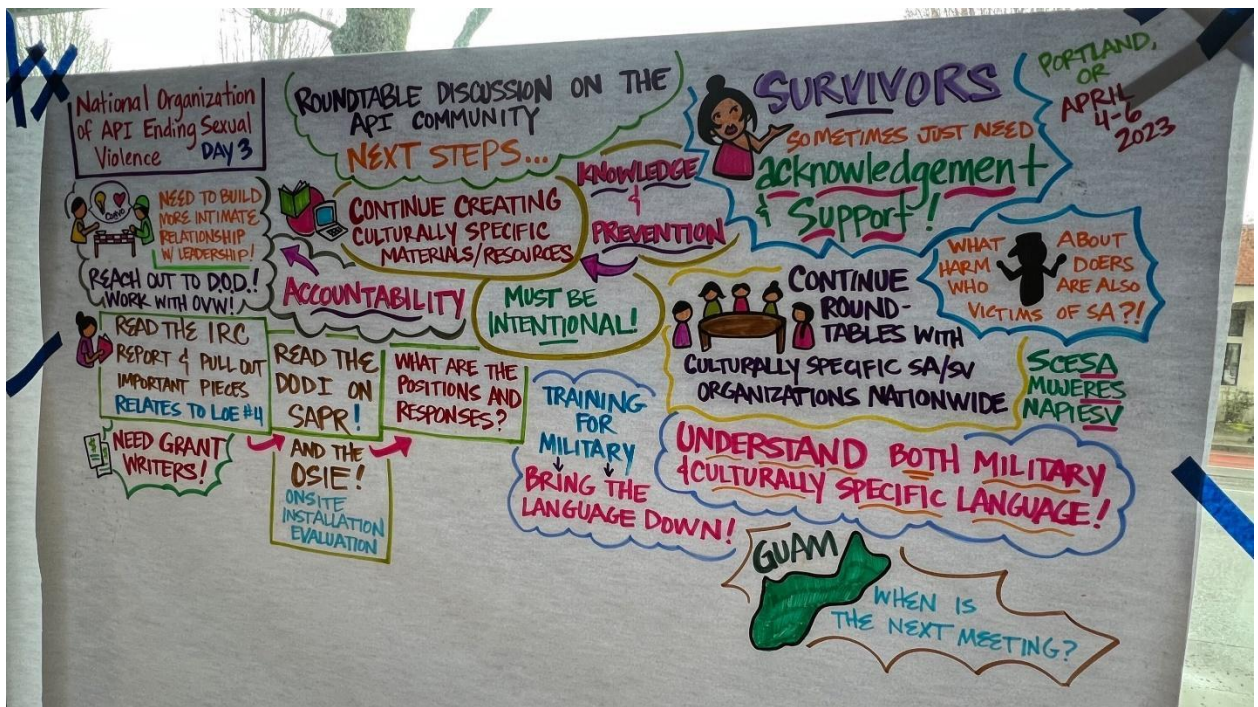 National Organization
of API Ending Sexual
Violence DAY 3
ROUNDTABLE DISCUSSION ON THE
API COMMUNITY
NEXT STEPS...
SURVIVORS
SOMETIMES JUST NEED
acknowledgement
& Support!
PORTLAND,
OR
APRIL
4-6
2023
NEED TO BUILD
MORE INTIMATE
RELATIONSHIP
W/ LEADERSHIP!
REACH OUT TO D.O.D.!
WORK WITH OVW!
CONTINUE CREATING
CULTURALLY SPECIFIC
MATERIALS/RESOURCES
KNOWLEDGE
&
PREVENTION
ACCOUNTABILITY
MUST BE
INTENTIONAL!
CONTINUE
ROUND-
TABLES WITH
CULTURALLY SPECIFIC SA/SV
ORGANIZATIONS NATIONWIDE
WHAT ABOUT
HARM DOERS
WHO ARE ALSO
VICTIMS OF SA?!
SCESA
MUJERES
NAPIESV
READ THE IRC
REPORT & PULL OUT
IMPORTANT PIECES
RELATES TO LOE #4
READ THE
DODI ON
SAPR!
WHAT ARE THE
POSITIONS AND
RESPONSES?
NEED GRANT
WRITERS!
AND THE
OSIE!
ONSITE
INSTALLATION
EVALUATION
TRAINING
FOR
MILITARY
BRING THE
LANGUAGE DOWN!
UNDERSTAND BOTH MILITARY
& CULTURALLY SPECIFIC LANGUAGE!
GUAM
WHEN IS
THE NEXT MEETING?